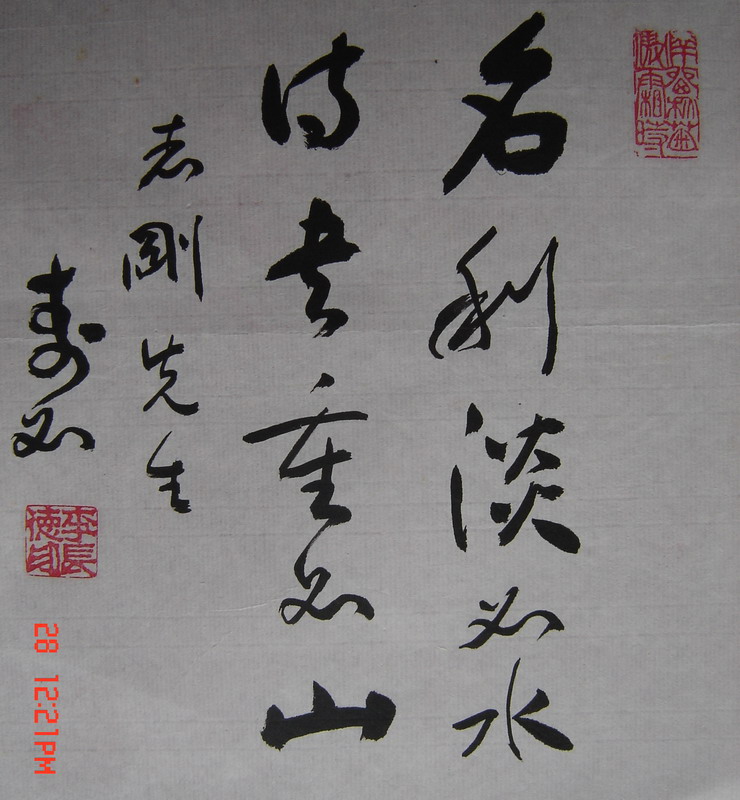 名利淡如水
詩書重如山
志剛先生
寿如
李長德印
28 12:21PM